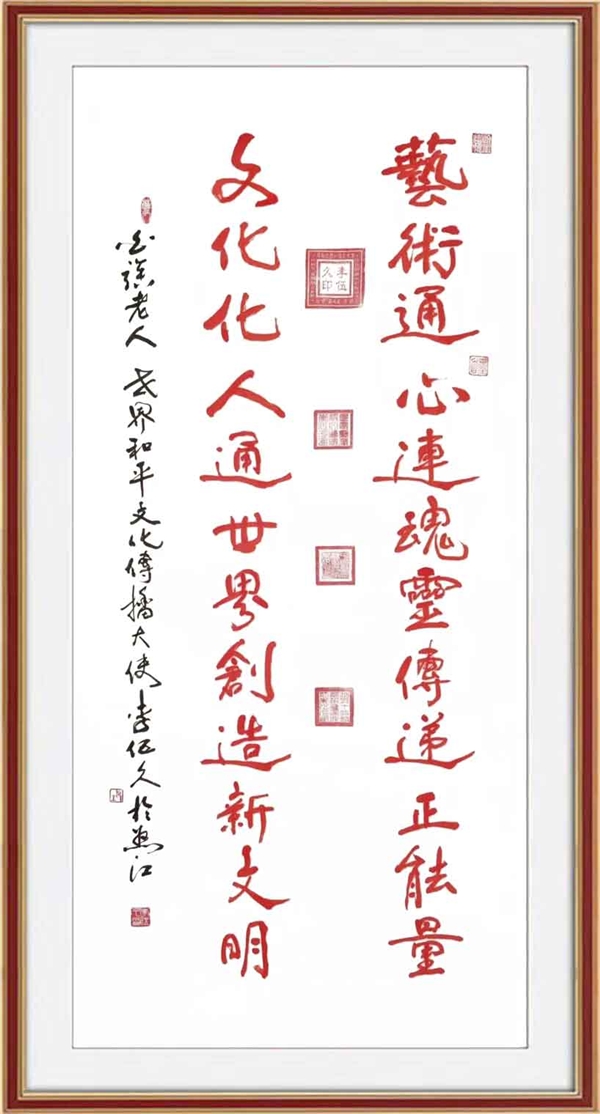 藝術通心連魂靈傳递正能量
李伍久印
文化化人通世界創造新文明
老人 世界和平文化傳播大使李伍久於江